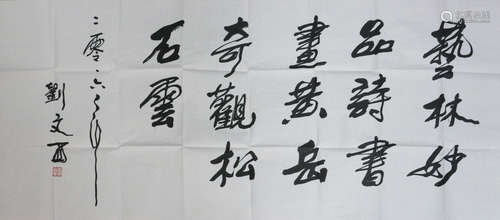 藝林妙
品詩書
畫黄岳
奇觀松
石雲
二零一六年
劉文西